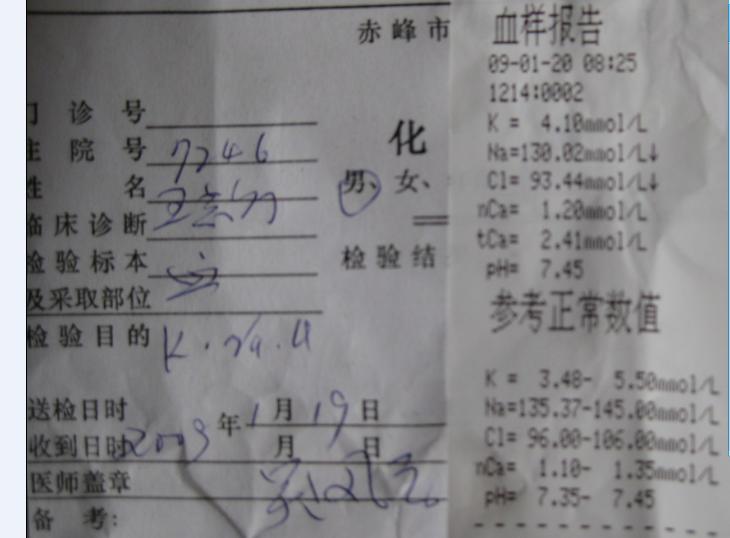 赤峰市
门诊号
住院号 7246
姓名
临床诊断
检验标本
及采取部位
检验目的 K.Na.Cl
送检日时 2009年1月19日
收到日时 月 日
医师盖章
备考:
化
男、女、
检验结
血样报告
09-01-20 08:25
1214:0002
K = 4.10mmol/L
Na=130.02mmol/L↓
Cl= 93.44mmol/L↓
nCa= 1.20mmol/L
tCa= 2.41mmol/L
pH= 7.45
参考正常数值
K = 3.48- 5.50mmol/L
Na=135.37-145.00mmol/L
Cl= 96.00-106.00mmol/L
nCa= 1.10- 1.35mmol/L
pH= 7.35- 7.45